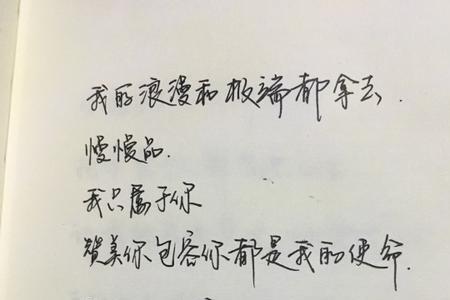 我的浪漫和极端都拿去.
慢慢品.
我只属于你
赞美你包容你都是我的使命.